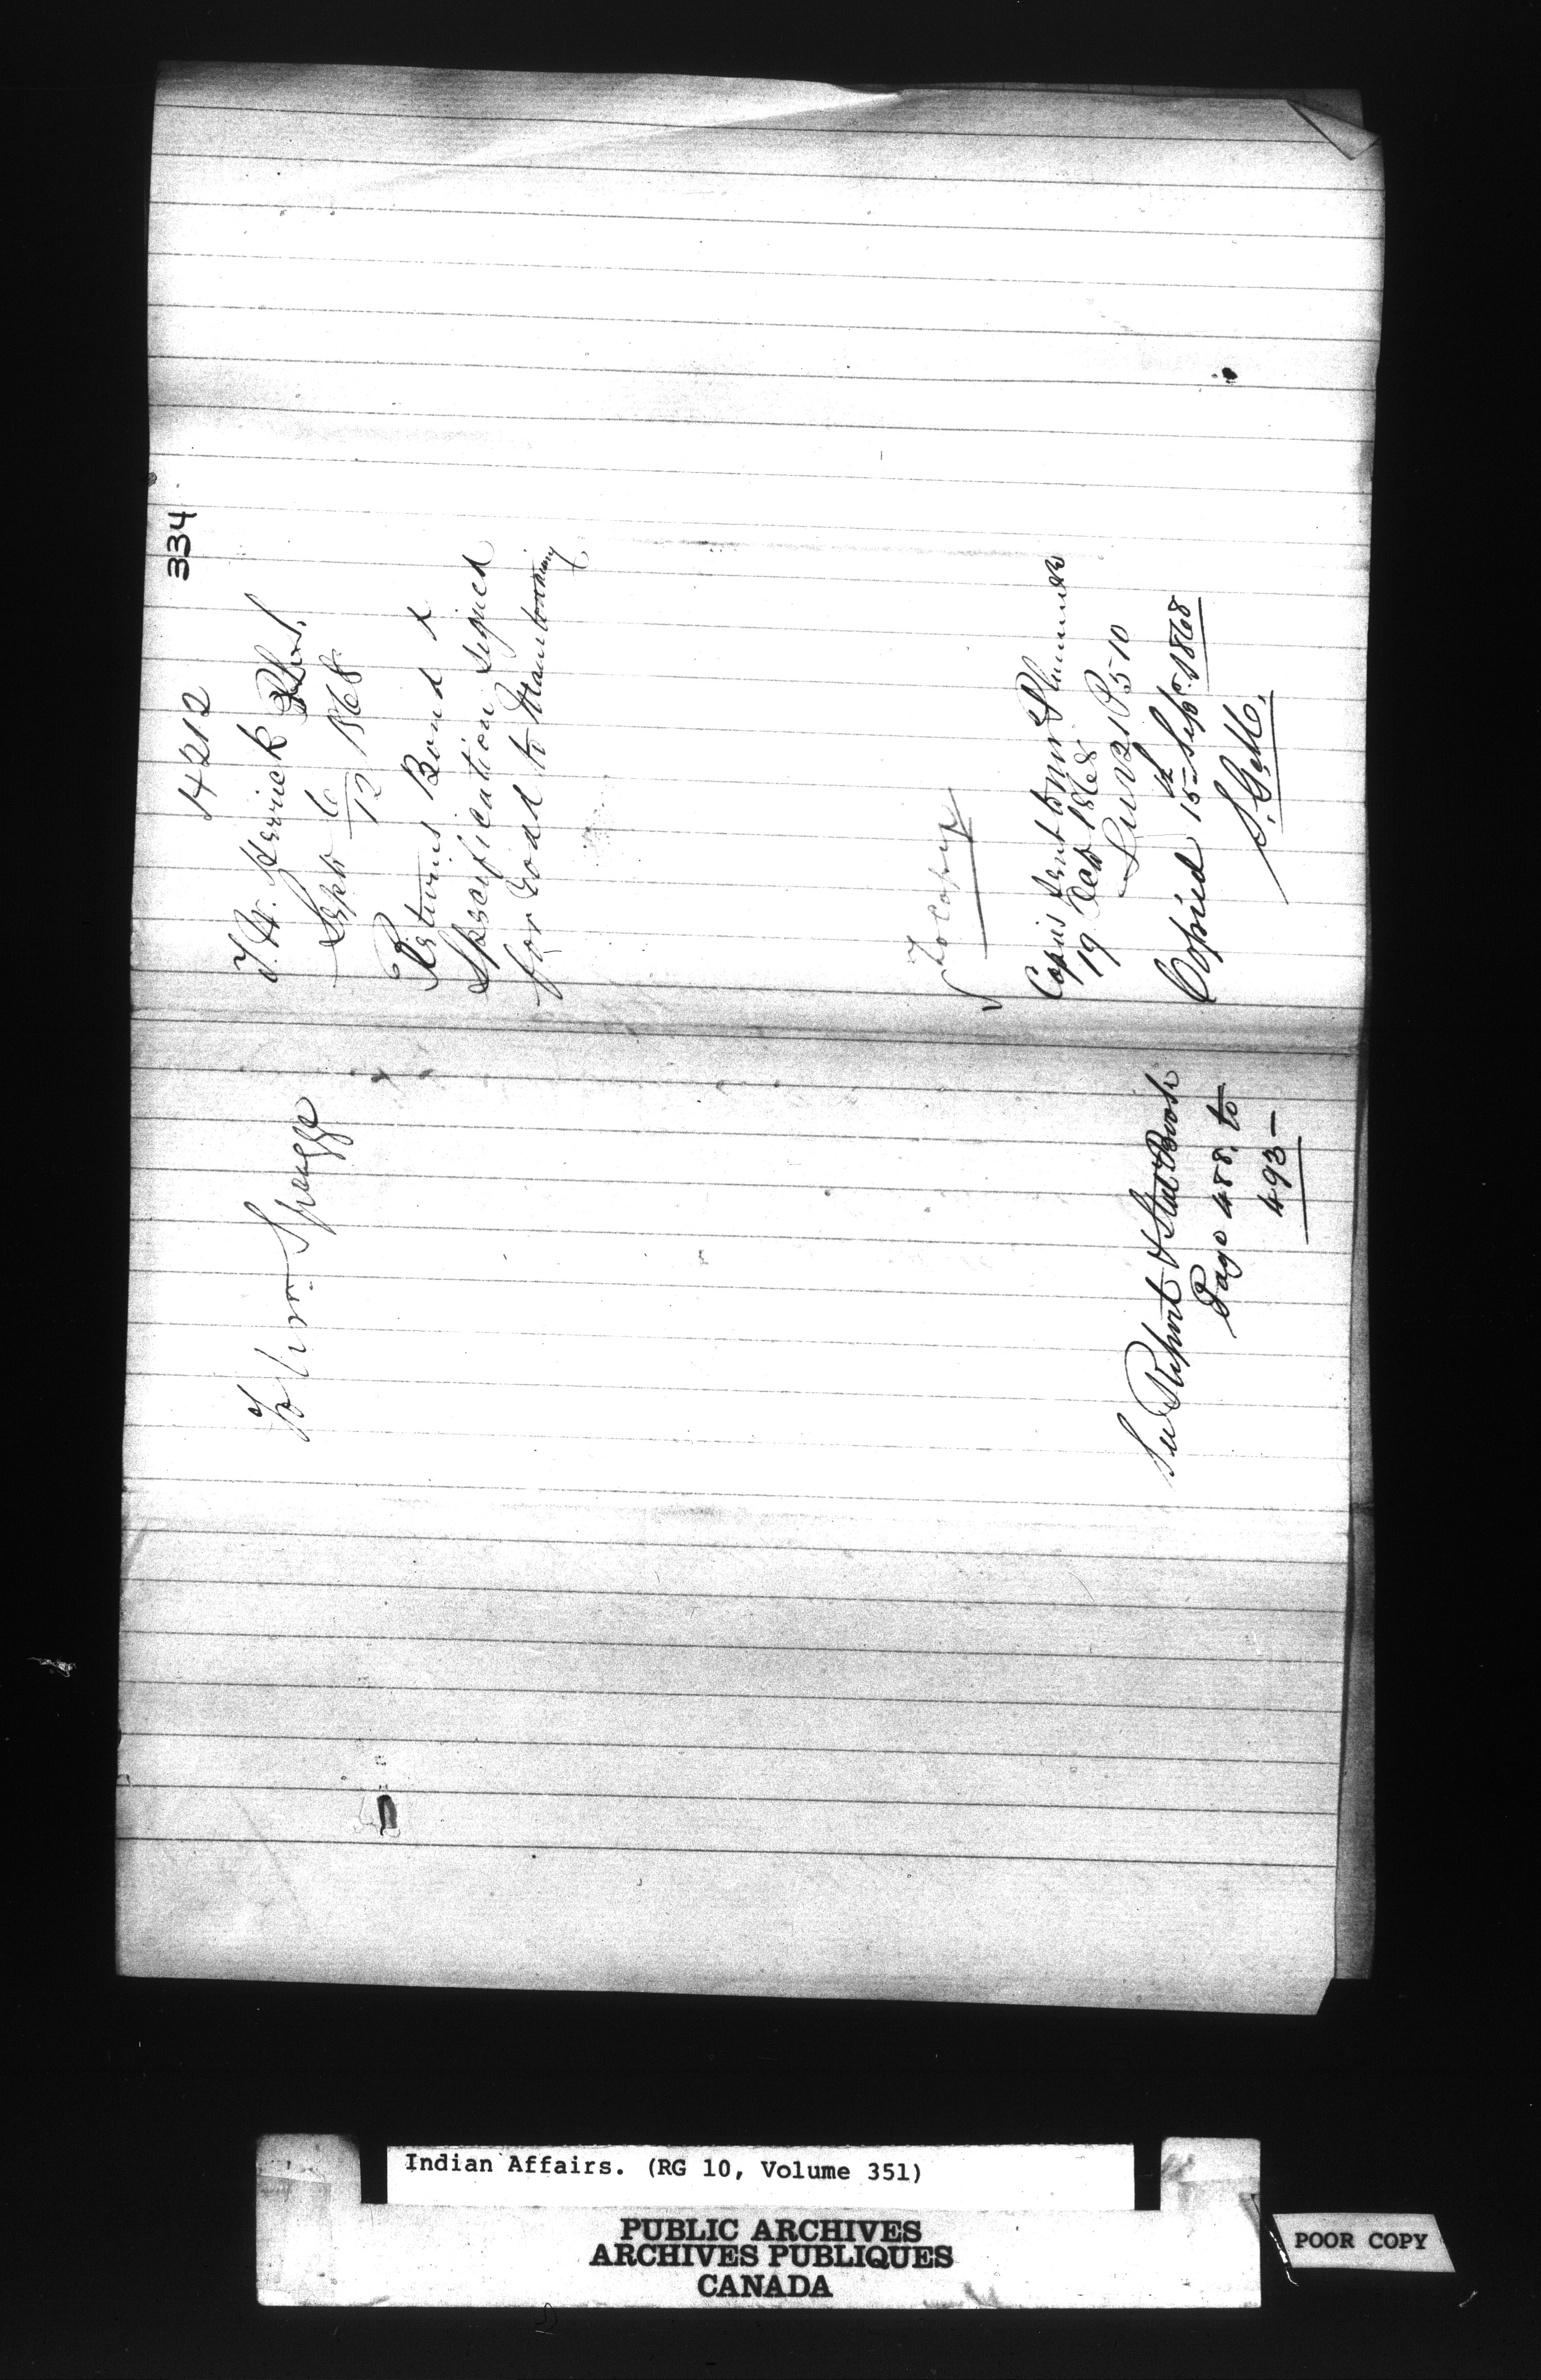 334
14212
T. W. Herrick
Sept 6/12 1868
Returns Bond &
Specification signed
for Road to Manitowaning
To Copy
Copies sent to Mr Plummer
19 Oct 1868
510
Copied 15th Sept. 1868
Mr. Spragge
See Report & Stat Book
Page 488. to
493 -
Indian Affairs. (RG 10, Volume 351)
PUBLIC ARCHIVES
ARCHIVES PUBLIQUES
CANADA
POOR COPY